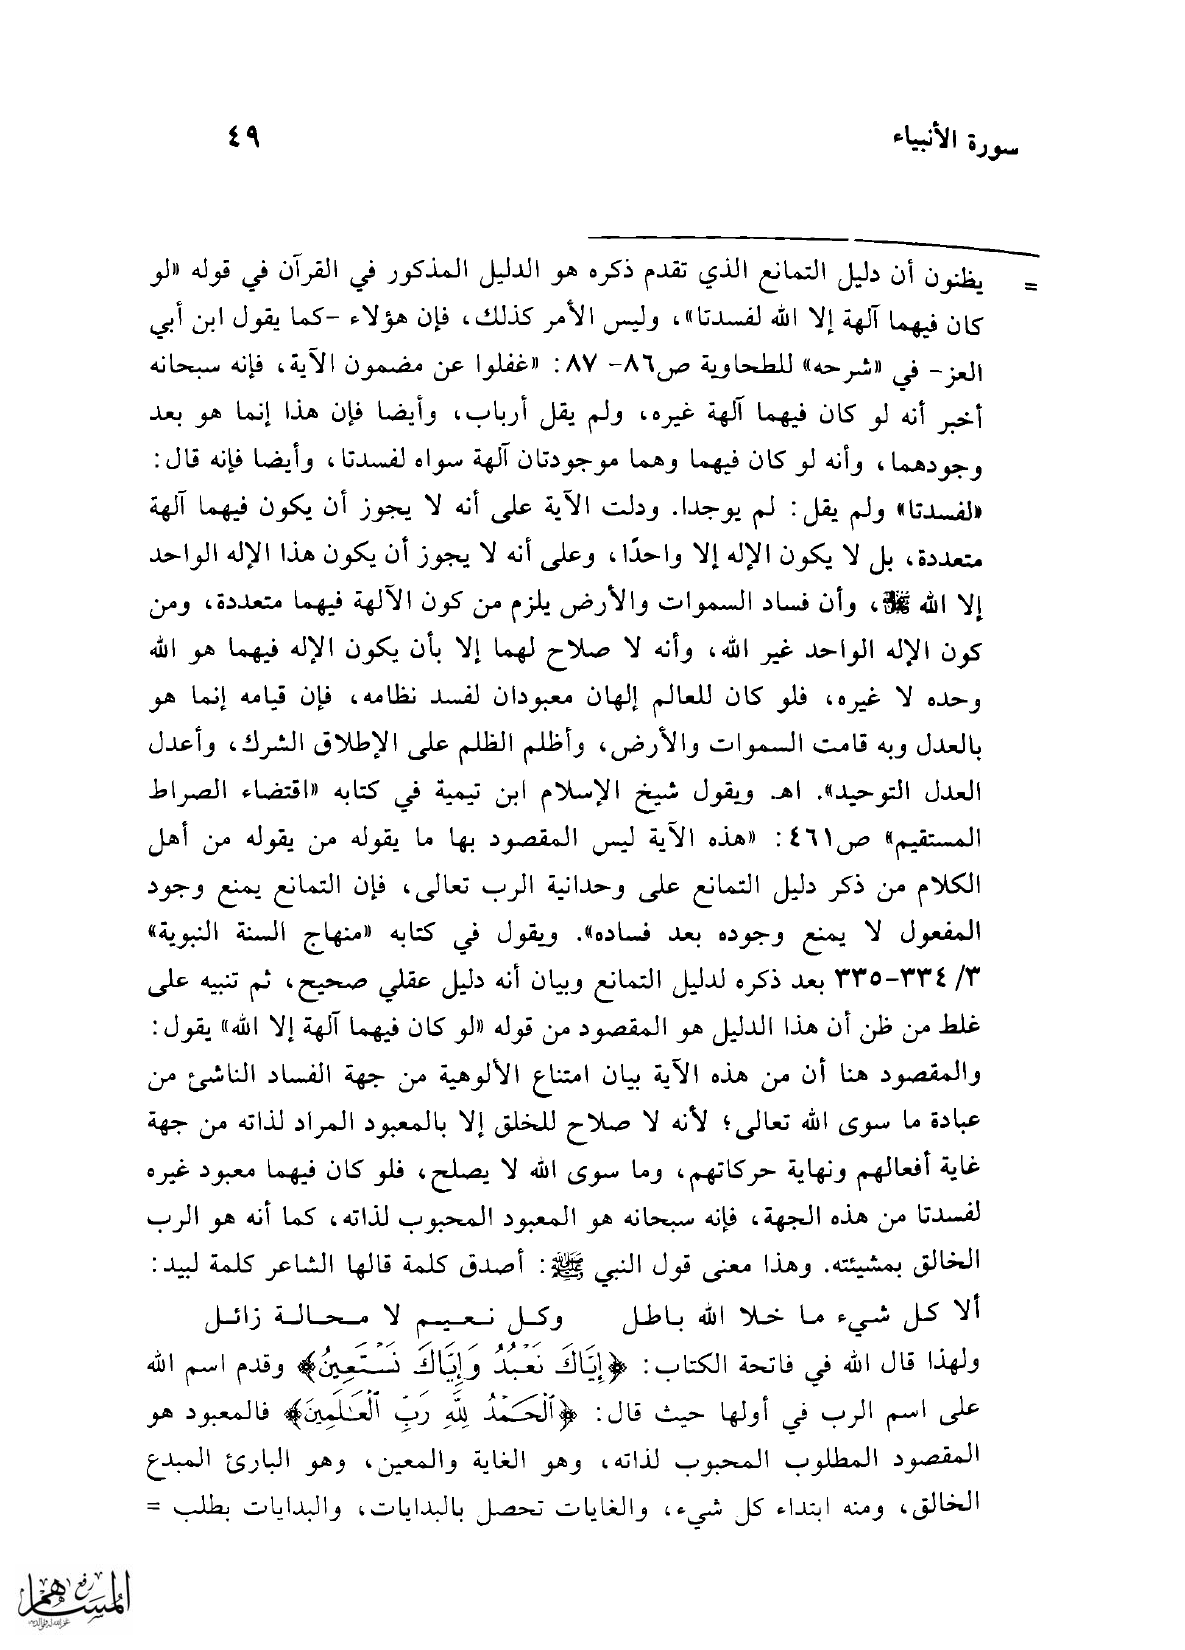 سورة الأنبياء ٤٩
= يظنون أن دليل التمانع الذي تقدم ذكره هو الدليل المذكور في القرآن في قوله «لو
كان فيهما آلهة إلا الله لفسدتا»، وليس الأمر كذلك، فإن هؤلاء -كما يقول ابن أبي
العز- في «شرحه» للطحاوية ص٨٦- ٨٧: «غفلوا عن مضمون الآية، فإنه سبحانه
أخبر أنه لو كان فيهما آلهة غيره، ولم يقل أرباب، وأيضا فإن هذا إنما هو بعد
وجودهما، وأنه لو كان فيهما وهما موجودتان آلهة سواه لفسدتا، وأيضا فإنه قال:
«لفسدتا» ولم يقل: لم يوجدا. ودلت الآية على أنه لا يجوز أن يكون فيهما آلهة
متعددة، بل لا يكون الإله إلا واحدًا، وعلى أنه لا يجوز أن يكون هذا الإله الواحد
إلا الله ، وأن فساد السموات والأرض يلزم من كون الآلهة فيهما متعددة، ومن
كون الإله الواحد غير الله، وأنه لا صلاح لهما إلا بأن يكون الإله فيهما هو الله
وحده لا غيره، فلو كان للعالم إلهان معبودان لفسد نظامه، فإن قيامه إنما هو
بالعدل وبه قامت السموات والأرض، وأظلم الظلم على الإطلاق الشرك، وأعدل
العدل التوحيد». اهـ. ويقول شيخ الإسلام ابن تيمية في كتابه «اقتضاء الصراط
المستقيم» ص٤٦١: «هذه الآية ليس المقصود بها ما يقوله من يقوله من أهل
الكلام من ذكر دليل التمانع على وحدانية الرب تعالى، فإن التمانع يمنع وجود
المفعول لا يمنع وجوده بعد فساده». ويقول في كتابه «منهاج السنة النبوية»
٣/ ٣٣٤-٣٣٥ بعد ذكره لدليل التمانع وبيان أنه دليل عقلي صحيح، ثم تنبيه على
غلط من ظن أن هذا الدليل هو المقصود من قوله «لو كان فيهما آلهة إلا الله» يقول:
والمقصود هنا أن من هذه الآية بيان امتناع الألوهية من جهة الفساد الناشئ من
عبادة ما سوى الله تعالى؛ لأنه لا صلاح للخلق إلا بالمعبود المراد لذاته من جهة
غاية أفعالهم ونهاية حركاتهم، وما سوى الله لا يصلح، فلو كان فيهما معبود غيره
لفسدتا من هذه الجهة، فإنه سبحانه هو المعبود المحبوب لذاته، كما أنه هو الرب
الخالق بمشيئته. وهذا معنى قول النبي ﷺ: أصدق كلمة قالها الشاعر كلمة لبيد:
ألا كل شيء ما خلا الله باطل وكل نعيم لا محالة زائل
ولهذا قال الله في فاتحة الكتاب: ﴿إِيَّاكَ نَعْبُدُ وَإِيَّاكَ نَسْتَعِينُ﴾ وقدم اسم الله
على اسم الرب في أولها حيث قال: ﴿ٱلْحَمْدُ لِلَّهِ رَبِّ ٱلْعَـٰلَمِينَ﴾ فالمعبود هو
المقصود المطلوب المحبوب لذاته، وهو الغاية والمعين، وهو البارئ المبدع
الخالق، ومنه ابتداء كل شيء، والغايات تحصل بالبدايات، والبدايات بطلب =